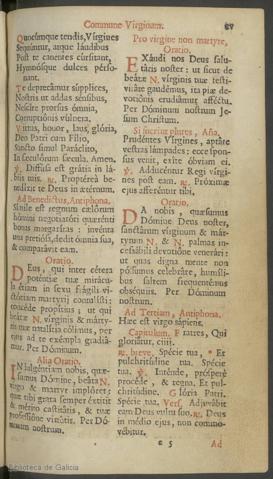 Commune Virginum.
Quocumque tendis, Virgines
Sequuntur, atque láudibus
Post te canentes cursitant,
Hymnosque dulces pérso-
nant.
Te deprecámur súpplices,
Nostris ut addas sénsibus,
Nescíre prorsus ómnia,
Corruptiónis vúlnera.
Virtus, honor, laus, glória,
Deo Patri cum Fílio,
Sancto simul Paráclito,
In seculórum sécula. Amen.
℣. Diffúsa est grátia in lá-
biis tuis. ℟. Proptérea be-
nedíxit te Deus in ætérnum.
Ad Benedictus, Antiphona.
Símile est regnum cælórum
hómini negotiatóri quærénti
bonas margarítas: invénta
una pretiósa, dedit ómnia sua,
& comparávit eam.
Oratio.
DEus, qui inter cétera
poténtiæ tuæ mirácu-
la étiam in sexu frágili vi-
ctóriam martyrij contulísti:
concéde propítius; ut qui
beátæ N. vírginis & márty-
ris tuæ natalítia cólimus, per
ejus ad te exémpla gradiá-
mur. Per Dóminum.
Alia Oratio.
INdulgéntiam nobis, quæ-
sumus Dómine, beáta N.
virgo & martyr implóret:
quæ tibi grata semper éxtitit
& mérito castitátis, & tuæ
professióne virtútis. Per Dó-
minum nostrum.
Pro virgine non martyre,
Oratio.
EXáudi nos Deus salu-
táris noster: ut sicut de
beátæ N. vírginis tuæ festi-
vitáte gaudémus, ita piæ de-
votiónis erudiámur afféctu.
Per Dóminum nostrum Je-
sum Christum.
Prudéntes Vírgines, aptáte
vestras lámpades: ecce spon-
sus venit, exíte óbviam ei.
℣. Adducéntur Regi vírgi-
nes post eam. ℟. Próximæ
ejus afferéntur tibi.
Oratio.
DA nobis, quæsumus
Dómine Deus noster,
sanctárum vírginum & már-
tyrum N. & N. palmas in-
cessábili devotióne venerári:
ut quas digna mente non
póssumus celebráre, humíli-
bus saltem frequentémus
obséquiis. Per Dóminum
nostrum.
Ad Tertiam, Antiphona.
Hæc est virgo sápiens.
Capitulum. Fratres, Qui
gloriátur, ℟. breve. Spécie tua, * Et
pulchritúdine tua. Spécie
tua. ℣. Inténde, próspere
procéde, & regna. Et pul-
chritúdine. Glória Patri.
Spécie tua. Vers. Adjuvábit
eam Deus vultu suo. ℟. Deus
in médio ejus, non commo-
vébitur.
Ad
Biblioteca de Galicia